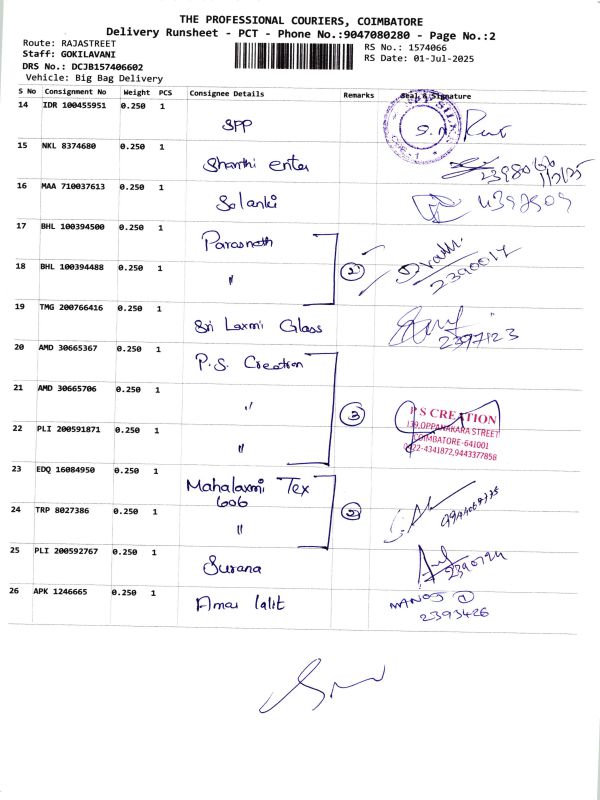 THE PROFESSIONAL COURIERS, COIMBATORE
Delivery Runsheet - PCT - Phone No.:9047080280 - Page No.:2
Route: RAJASTREET
RS No.: 1574066
Staff: GOKILAVANI
RS Date: 01-Jul-2025
DRS No.: DCJB157406602
Vehicle: Big Bag Delivery
S No Consignment No Weight PCS Consignee Details Remarks Seal & Signature
14 IDR 100455951 0.250 1 SPP
15 NKL 8374680 0.250 1 Shanthi enter
1/7/25
16 MAA 710037613 0.250 1 Solanki
17 BHL 100394500 0.250 1 Parasnath
18 BHL 100394488 0.250 1 " 2
2390017
19 TMG 200766416 0.250 1 Sri Laxmi Glass
2397123
20 AMD 30665367 0.250 1 P.S. Creation
21 AMD 30665706 0.250 1 " 3
22 PLI 200591871 0.250 1 "
P S CREATION
139,OPPANAKARA STREET
COIMBATORE-641001
0422-4341872,9443377858
23 EDQ 16084950 0.250 1 Mahalaxmi Tex
606
24 TRP 8027386 0.250 1 " 2
25 PLI 200592767 0.250 1 Surana
26 APK 1246665 0.250 1 Amar lalit
MANOJ
2393426